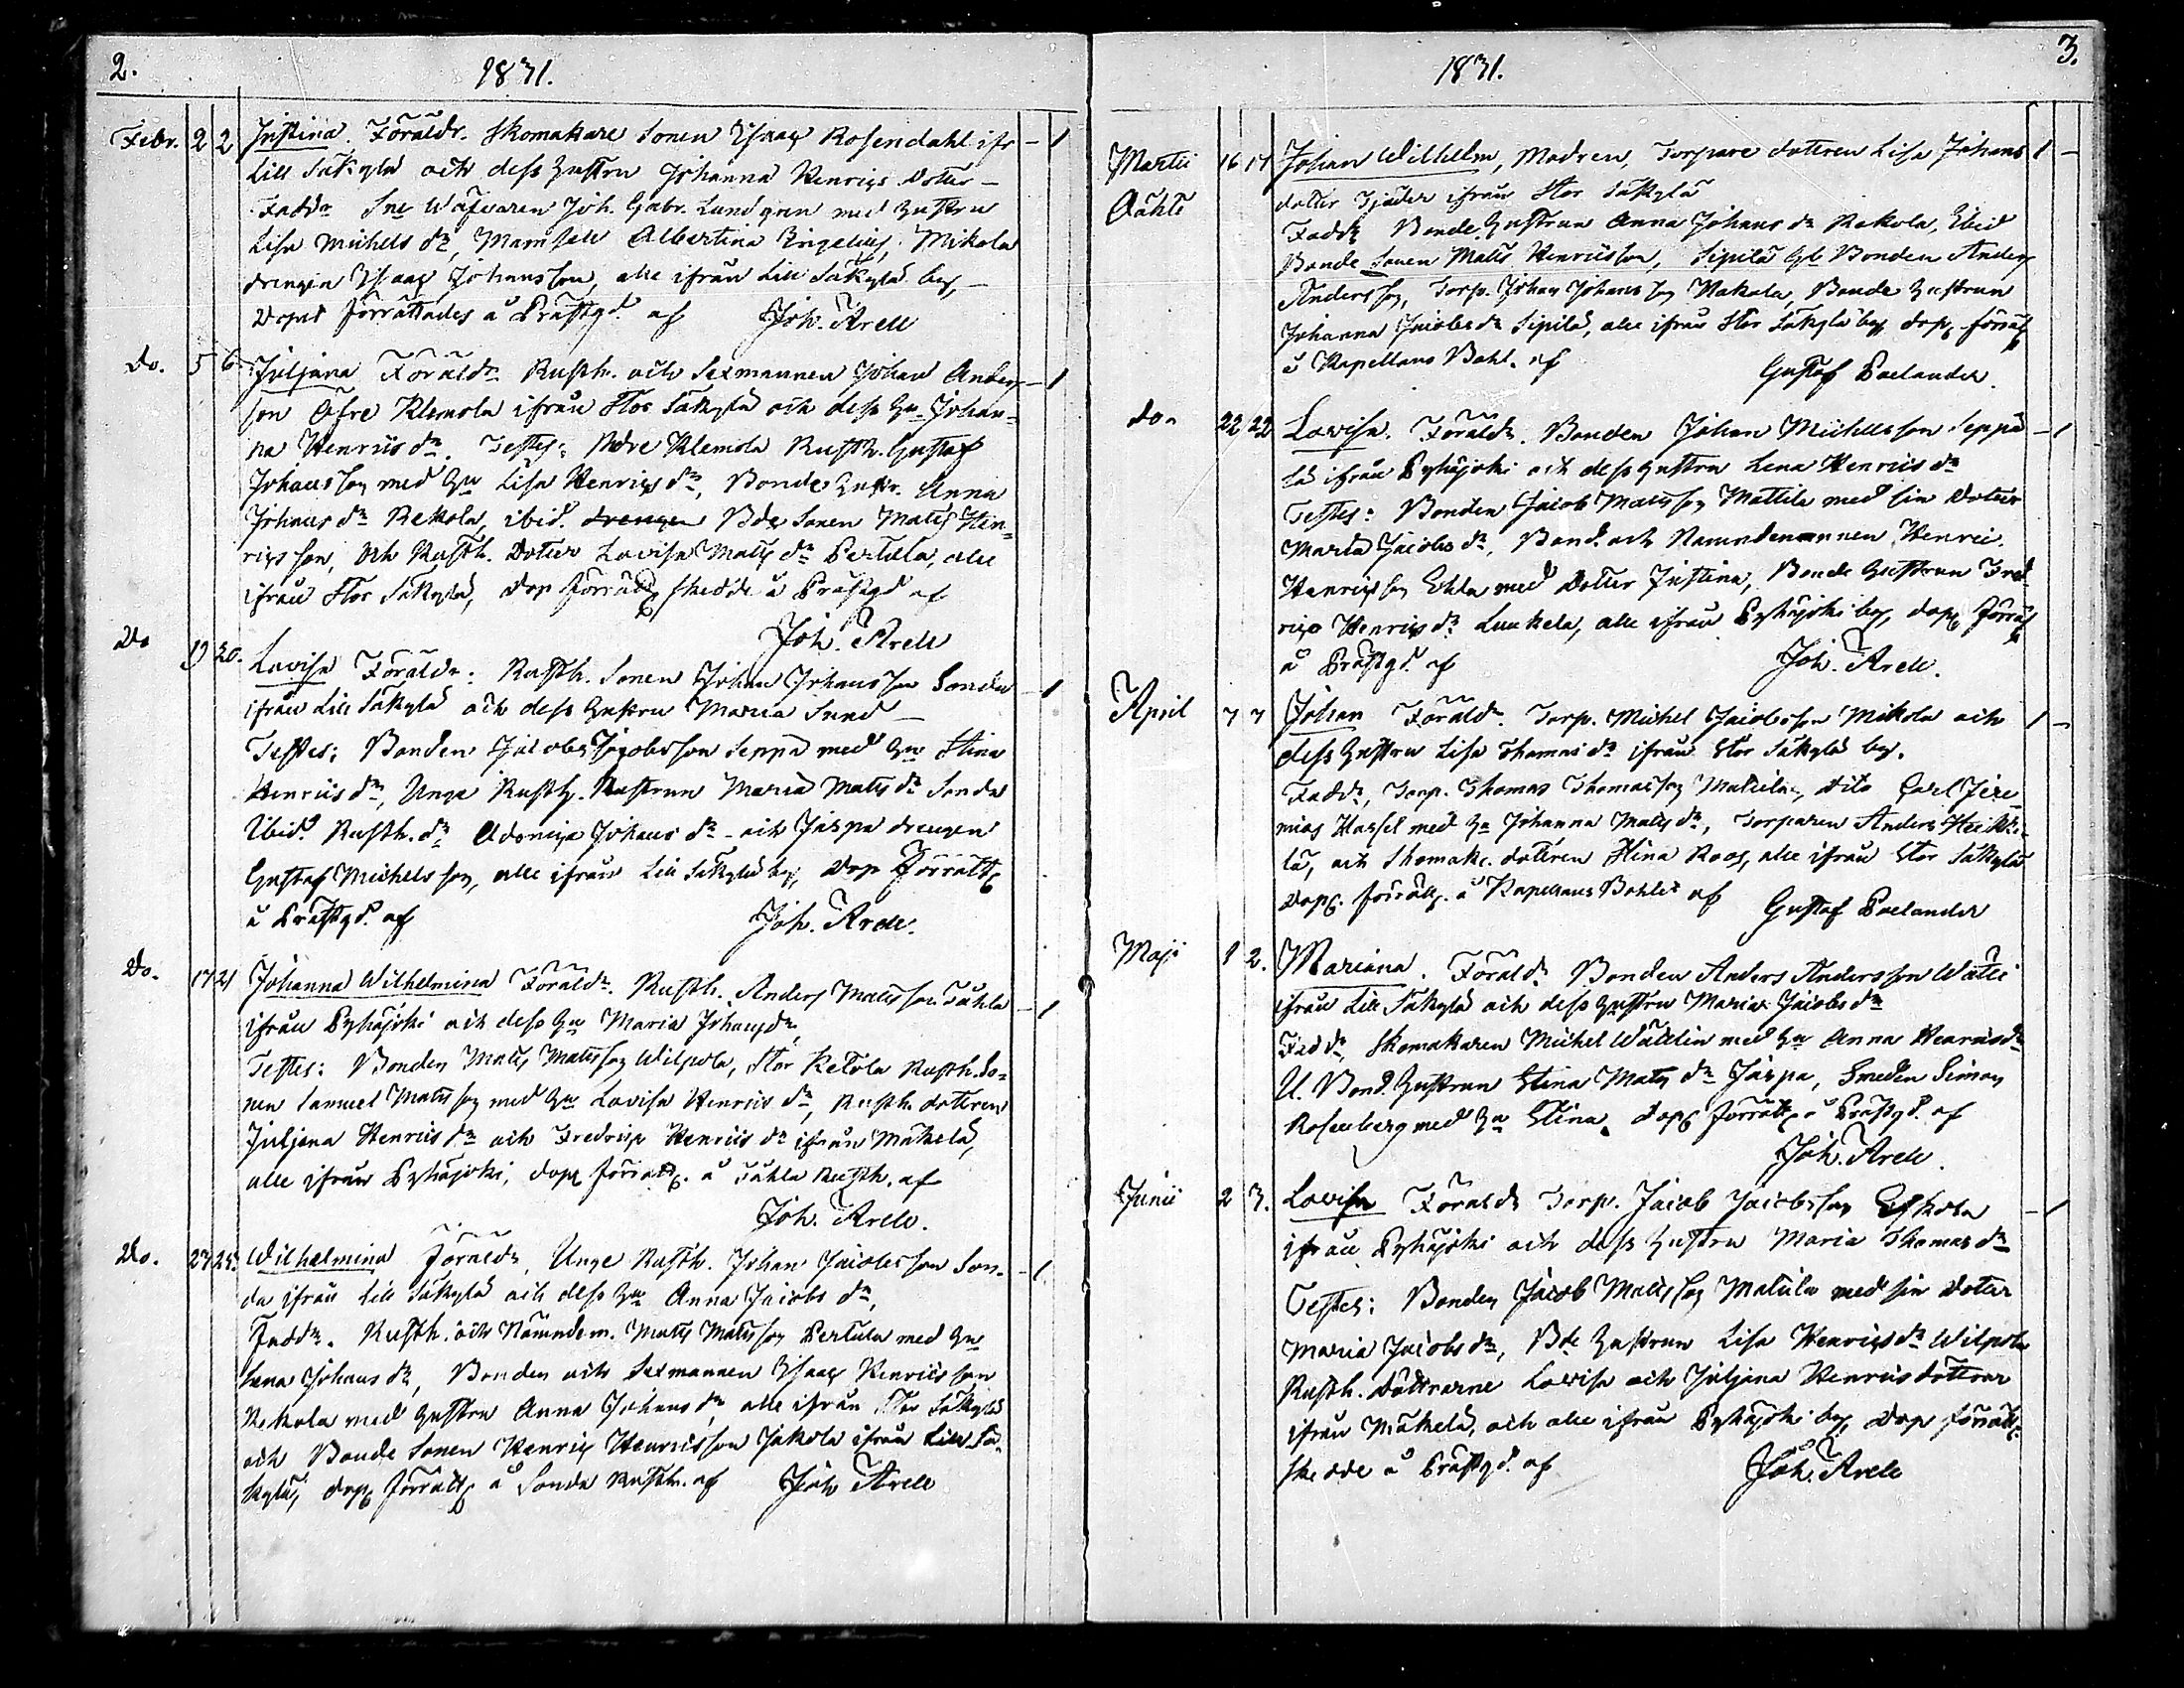 2.
1831.
Febr. 2 2 Justina. Föräldr. Skomakare Sonen Isaac Rosendahl ifr – 1
Lill Säkylä och dess Hustru Johanna Henrics dotter –
Faddr Sne Wäfvaren Joh. Gabr. Lundgren med Hustru
Lisa Michels dr, Mamsell Albertina Ingelius, Mikola
drengen Isaac Johansson, alle ifrån Lill Säkylä by, –
Dopet förrättades å Prästgd. af Joh. Arell
Do. 5 6 Juljana Föräldr Rusth. och Sexmannen Johan Anders – 1
son Öfre Klemola ifrån Stor Säkylä och dess Hu Johan=
na Henrics dr. Testes: Nedre Klemola Rusth. Gustaf
Johansson med Hu Lisa Henrics dr, Bonde Hustr. Anna
Johans dr Rekola, ibid. drengen Bde Sonen Matts Hen=
rics son, och Rusth. Dotter Lovisa Matts dr Perttula, alle
ifrån Stor Säkylä, dop förrättn skedde å Prästgd af
Joh. Arell
Do 19 20. Lovisa Föräldr: Rusth. Sonen Johan Johansson Sonda – 1
ifrån Lill Säkylä och dess Hustru Maria Sund –
Testes: Bonden Jacob Jacobsson Seppä med Hu Stina
Henrics dr, Unga Rusth. Hustrun Maria Matts dr Sonda
Ibid. Rusth. dr Adamina Johans dr – och Jaspa drengen
Gustaf Michelsson, alle ifrån Lill Säkylä by, Dop förrätt
å Prästgd. af Joh. Arell.
Do. 17 21 Johanna Wilhelmina Föräldr. Rusth. Anders Matts son Tåhla – 1
ifrån Pyhäjoki och dess Hu Maria Johans dr,
Testes: Bonden Matts Mattsson Wilpola, Stor Ketola Rusth. So=
nen Samuel Mattsson med Hu Lovisa Henrics dr, Rusth. dottren
Juljana Henrics dr och Fredrica Henrics dr ifrån Mäkelä,
alle ifrån Pyhäjoki, dop förrätt. å Tåhla Rusth. af
Joh. Arell.
Do. 23 25. Wilhelmina Föräldr, Unge Rusth. Johan Jacobsson Son- – 1
da ifrån Lill Säkylä och dess Hu Anna Jacobs dr,
Faddr. Rusth. och Nämndem. Matts Mattsson Perttula med Hu
Lena Johans dr, Bonden och Sexmannen Isaac Henricsson
Rekola med Hustru Anna Johans dr alle ifrån Stor Säkylä
och Bonde Sonen Henric Henricsson Jakola ifrån Lill Sä-
kylä, dop förrätt å Sonda Rusth. af Joh Arell
3.
1831.
Martii 16 17 Johan Wilhelm, Modren, Torpare dotteren Lisa Johans 1 –
Oächte dotter Tjäder ifrån Stor Säkylä
Faddr Bonde Hustrun Anna Johans dr Rekola, Ibid
Bonde Sonen Matts Henricsson, Sipilä Bonden Anders
Andersson, Torp. Johan Johansson Nakola, Bonde Hustrun
Johanna Jacobs dr Sipilä, alle ifrån Stor Säkylä by, dop förrätt
å Kapellans Bohl. af Gustaf Polander.
do. 22 22 Lovisa. Föräldr. Bonden Johan Michelsson Seppä – 1
lä ifrån Pyhäjoki och dess Hustru Lena Henrics dr
Testes: Bonden Jacob Mattsson Mattila med sin Dotter
Maria Jacobs dr, Bond. och Nämndemannen Henric
Henricsson Eskla med Dotter Justina, Bonde Hustrun Fred-
rica Henrics dr Luukela, alle ifrån Pyhäjoki by, dop förrätt
å Prästgd. af Joh. Arell.
April 7 7 Johan Föräldr. Torp. Michel Jacobsson Mikola och 1 –
dess Hustru Lisa Thomas dr ifrån Stor Säkylä by.
Faddr, Torp. Thomas Thomasson Mattila, dito Carl Jere-
mias Hassel med Hu Johanna Matts dr, Torparen Anders Heikki-
lä, och Skomak. dottren Stina Roos, alle ifrån Stor Säkylä
Dop. förrätt. å Kapellans Bohlet af Gustaf Polander
Maji 1 2. Mariana. Föräldr Bonden Anders Andersson Wätti
ifrån Lill Säkylä och dess Hustru Maria Jacobs dr
Faddr, Skomakaren Michel Wallin med Hu Anna Henrics dr
U. Bond. Hustrun Stina Matts dr Jaspa, Smeden Simon
Rosenberg med Hu Stina, dop förrätt å Prästgd. af
Joh. Arell.
Junii 2 3. Lovisa Föräldr Torp. Jacob Jacobsson Eskola – 1
ifrån Pyhäjoki och dess Hustru Maria Thomas dr
Testes: Bonden Jacob Mattsson Mattila med sin dotter
Maria Jacobs dr, Bde Hustrun Lisa Henrics dr Wilpola
Rusth. döttrarne Lovisa och Juljana Henrics döttrar
ifrån Mäkelä, och alle ifrån Pyhäjoki by, dop förrätt.
skedde å Prästgd. af Joh. Arell